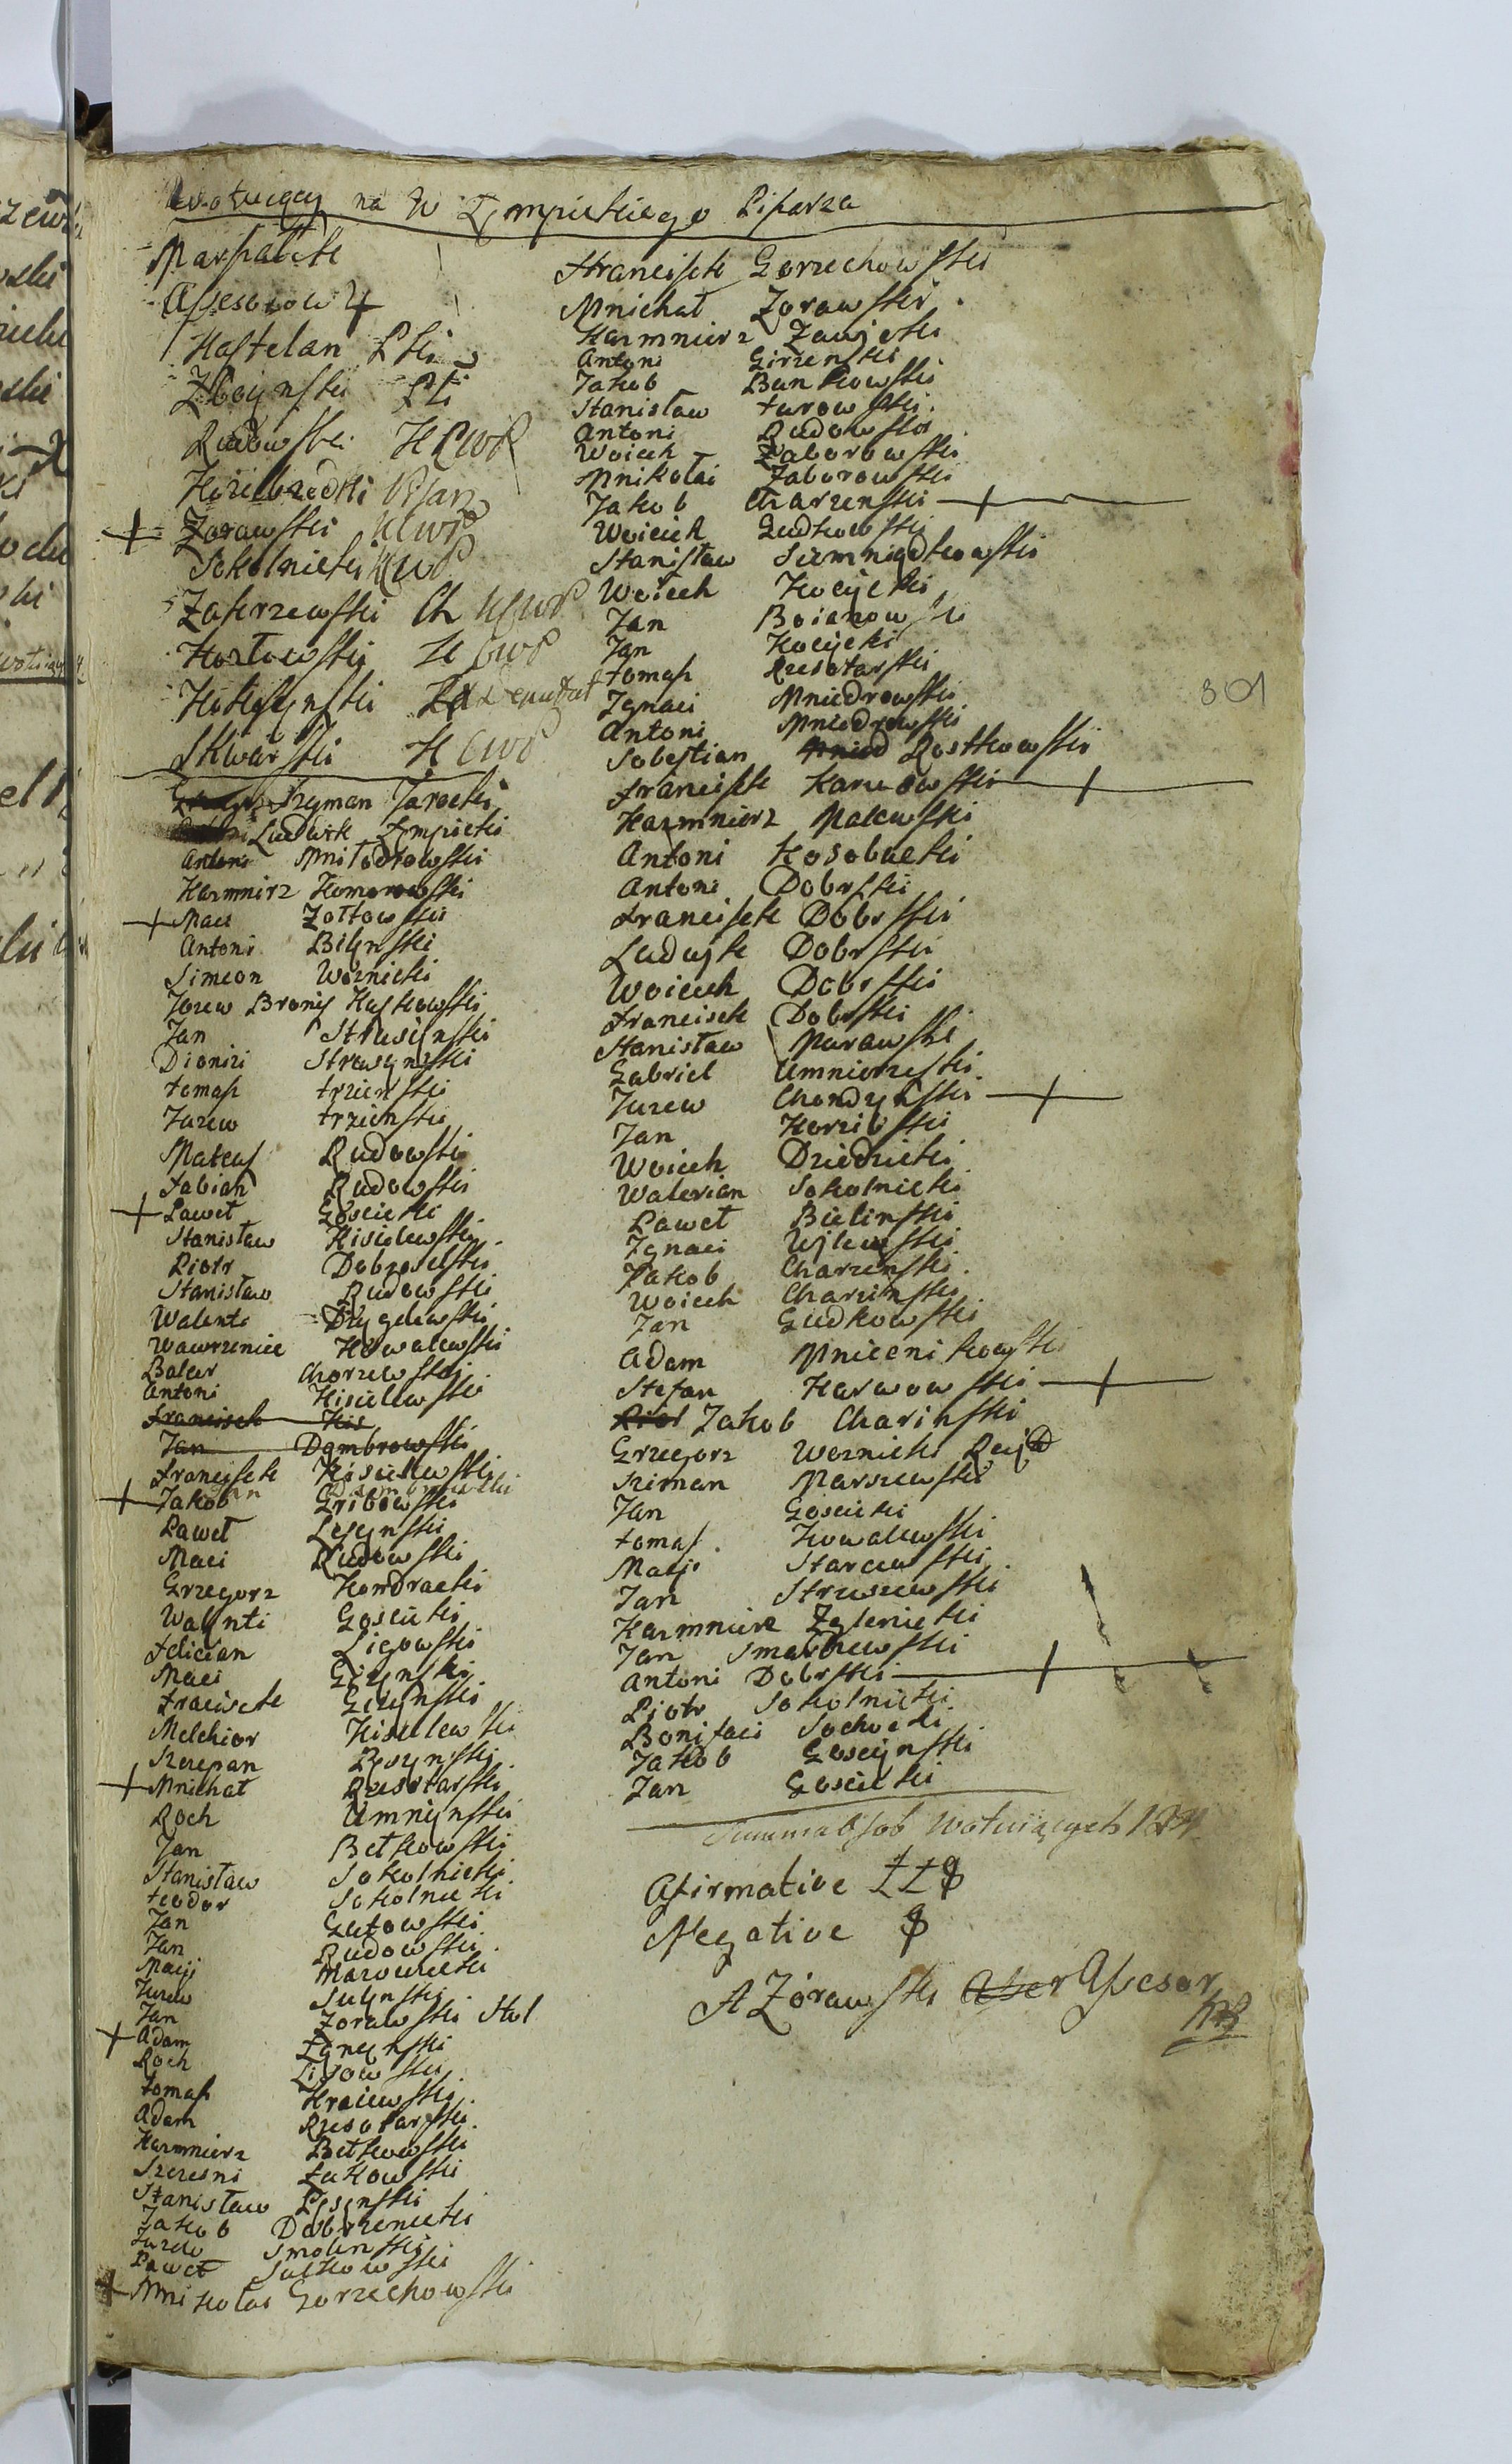 Wotuięcy na W Zympickiego Pisarza
Marszałek
Assesorow 4
Kasztelan Płki
Zboynski Płł
Rudowski KCWP
Kozebrodzki Pisarz
+ Zorawski KCWP
Sokolnicki KCWP
Zakrzewski Ch KCWP
Kozłowski K CWP
Kokoszynski Ex Deputat
Skwarski K CWP
Szyman Jarocki
Ludwik Zympicki
Antoni Mniłodrowski
Kazmnirz Komorowski
+ Maci Zołtowski
Antoni Bilynski
Simeon Woznicki
Jozew Bronis Kuskowski
Jan Strusynski
Dionizi Strusynski
tomasz trzcinski
Juzew trzcinski
Mateusz Rudowski
Fabian Rudowski
+ Paweł Goscicki
Stanisław Kisielewski
Piotr Dobroselski
Stanisław Rudowski
Walenti Dłygolewski
Wawrzeniec Kowalewski
Balcer Chorzewski
Antoni Kisielewski
Franciszek Kis
Jan Dombrowski
Franciszek Kisielewski
Jan Dombrowski
+ Jakob Gribowski
Paweł Lesynski
Maci Rudowski
Grzegorz Kondracki
Walynti Goscicki
Felician Ligowski
Maci Gizynski
Fraciszek Gizynski
Melchior Kisielewski
Szczepan Rosynski
+ Mnichał Rzeszotarski
Roch Umniynski
Jan Betkowski
Stanisław Sokolnicki
teodor Sokolnicki
Jan Gutowski
Jan Rudowski
Maciy Mazowiecki
Juzew Sulynski
Jan Zorawski Stol
+ Adam Zynynski
Roch Lisowski
tomasz Kraiewski
Adam Rzeszotarski
Kazmnierz Betkowski
Szczesni Łukowski
Stanisław Lesynski
Jakob Dobrzenicki
Juzew Smolenski
Paweł Sutkowski
+ Mnikołai Gorzechowski
Franciszek Gorzechowski
Mnichał Zorawski
Kazmnierz Zawicki
Antoni Girzenski
Jakob Bankowski
Stanisław turowski
Antoni Rudowski
Woicech Zaborowski
Mnikołai Zaborowski
Jakob Charzenski +
Woiciech Gudkowski
Stanisław Siemniądkowski
Woiciech Kocięcki
Jan Boianowski
Jan Kocięcki
tomasz Rzeszotarski
Jgnaci Mniedrowski
Antoni Mniedrowski
Sobestian Mnied Rostkowski
Franciszek Karwowski +
Kazmnierz Malewski
Antoni Kosobucki
Antoni Dobrski
Franciszek Dobrski
Ludwik Dobrski
Woiciech Dobrski
Franciszek Dobrski
Stanisław Murawski
Gabriel Umnierzski
Juzew Chondzynski +
Jan Korzibski
Woicech Dziedzicki
Walerian Sokolnicki
Paweł Bielinski
Jgnaci Wylewski
Jakob Charzenski
Woicech Charzinski
Jan Gudkowski
Adam Mniecnikowski
Stefan Karwowski +
Jakob Charinski
Grzegorz Woznicki Rej
Sziman Marszewski
Jan Goscicki
tomasz Kowalewski
Maciy Starczewski
Jan Struszewski
Kazmnierz Zglenicki
Jan Smardzewski
Antoni Dobrski +
Piotr Sokolnicki
Bonifaci Sochocki
Jakob Goscynski
Jan Goscicki
301
Summa Osob Wotuiących
Afirmative
Negative
A Zórawski Asser Assesor